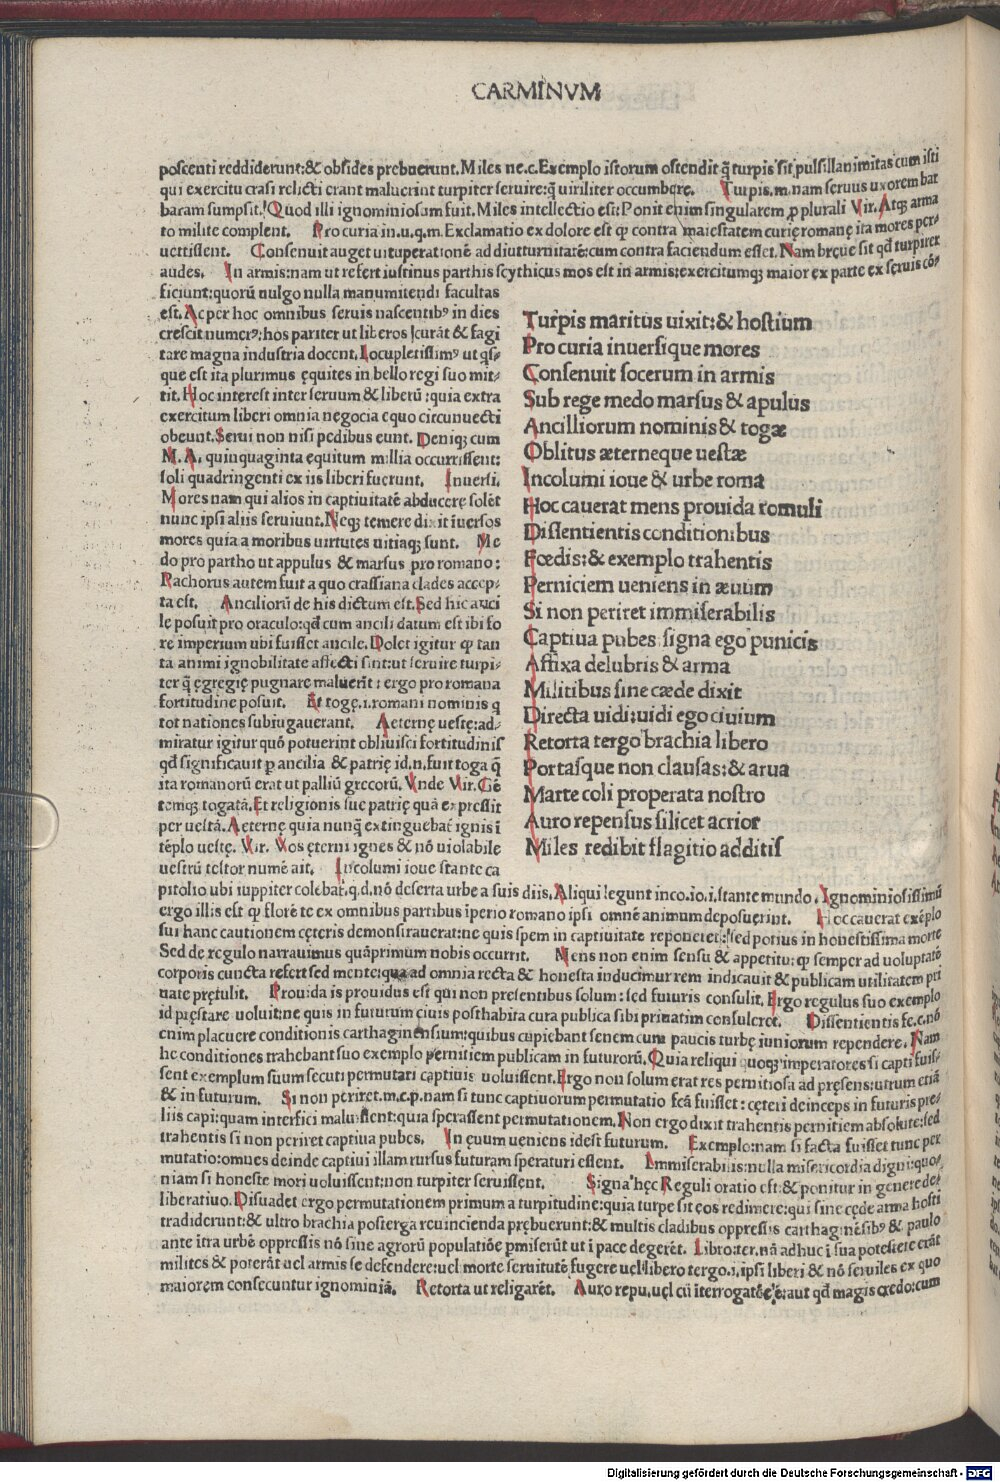 CARMINVM
poscenti reddiderunt:& obsides prebuerunt. Miles ne.c. Exemplo istorum ostendit q̃ turpis sit pulsillanimitas cum isti
qui exercitu crasi relicti erant maluerint turpiter seruire:q̃ uiriliter occumbere. Turpis.m.nam seruus uxorem bar
baram sumpsit.!Quod illi ignominiosum fuit. Miles intellectio est: Ponit enim singularem ꝓ plurali Vir. Atqꝫ arma
to milite complent. Pro curia in.u.q.m. Exclamatio ex dolore est ꝙ contra maiestatem curię romanę ita mores per/
uertissent. Consenuit auget uituperationẽ ad diutturnitatẽ:cum contra faciendum esset. Nam breue sit qđ turpiter
audes. In armis:nam ut refert iustinus parthis scythicus mos est in armis:exercitumqꝫ maior ex parte ex seruis cõ/
ficiunt:quorũ uulgo nulla manumitendi facultas
est. Ac per hoc omnibus seruis nascentibꝰ in dies
crescit numerꝰ:hos pariter ut liberos |curãt & sagi
tare magna industria docent. Locupletissimꝰ ut qs/
que est ita plurimus ęquites in bello regi suo mit/
tit. Hoc interest inter seruum & liberũ:quia extra
exercitum liberi omnia negocia equo circunuecti
obeunt. Serui non nisi pedibus eunt. Deniqꝫ cum
M. A. quinquaginta equitum millia occurrissent:
soli quadringenti ex iis liberi fuerunt. Inuersi.
Mores nam qui alios in captiuitatẽ abducere solẽt
nunc ipsi aliis seruiunt. Neqꝫ temere dixit iuersos
mores quia a moribus uirtutes uitiaqꝫ sunt. Me
do pro partho ut appulus & marsus pro romano:
Rachorus autem fuit a quo crassiana clades accep/
ta est. Anciliorũ de his dictum est. Sed hic auci
lę posuit pro oraculo:qđ cum ancili datum est ibi fo
re imperium ubi fuisset ancile. Dolet igitur ꝙ tan
ta animi ignobilitate affecti sint:ut seruire turpi/
ter q̃ ęgregię pugnare maluerĩt: ergo pro romana
fortitudine posuit. Et togę.i.romani nominis q
tot nationes subiugauerant. Aeternę uestę:ad/
miratur igitur quõ potuerint obliuisci fortitudinis
qđ significauit ꝑ ancilia & patrię id.n.fuit toga q̃
ita romanorũ erat ut palliũ grecorũ. Vnde Vir. Gẽ
temqꝫ togatã. Et religionis suę patrię quã expressit
per uestã. Aeternę quia nunq̃ extinguebat̃ ignis ĩ
tẽplo uestę. Vir. Vos ęterni ignes & nõ uiolabile
uestrũ testor numẽ ait. Incolumi ioue stante ca
Turpis maritus uixit:& hostium
Pro curia inuersique mores
Consenuit socerum in armis
Sub rege medo marsus & apulus
Ancilliorum nominis & togæ
Oblitus æterneque uestæ
Incolumi ioue & urbe roma
Hoc cauerat mens prouida romuli
Dissentientis conditionibus
Fœdis:& exemplo trahentis
Perniciem ueniens in æuum
Si non periret immiserabilis
Captiua pubes: signa ego punicis
Affixa delubris & arma
Militibus sine cæde dixit
Directa uidi:uidi ego ciuium
Retorta tergo brachia libero
Portasque non clausas:& arua
Marte coli properata nostro
Auro repensus silicet acrior
Miles redibit flagitio additis
pitolio ubi iuppiter colebat̃,q.d.nõ deserta urbe a suis diis. Aliqui legunt inco.io.i.stante mundo. Ignominiosissimũ
ergo illis est ꝙ florẽte ex omnibus partibus ĩperio romano ipsi omnẽ animum deposuerint. Hoc cauerat exẽplo
sui hanc cautionem cęteris demonstrauerat:ne quis spem in captiuitate reponeret:sed potius in honestissima morte
Sed de regulo narrauimus quãprimum nobis occurrit. Mens non enim sensu & appetitu: ꝙ semper ad uoluptatẽ
corporis cuncta refert sed mente:qua ad omnia recta & honesta inducimur rem indicauit & publicam utilitatem pri
uate prętulit. Prouida is prouidus est qui non presentibus solum: sed futuris consulit. Ergo regulus suo exemplo
id pręstare uoluit:ne quis in futurum ciuis posthabita cura publica sibi priuatim consuleret. Dissentientis fe.c.nõ
enim placuere conditionis carthaginensium:quibus cupiebant senem cum paucis turbę iuniorum rependere. Nam
hę conditiones trahebant suo exemplo pernitiem publicam in futurorũ. Quia reliqui quoqꝫ imperatores si capti fuis/
sent exemplum suum secuti permutari captiuis uoluissent. Ergo non solum erat res pernitiosa ad pręsens:utrum etiã
& in futurum. Si non periret.m.c.p.nam si tunc captiuorum permutatio fcã fuisset: cęteri deinceps in futuris pre/
liis capi:quam interfici maluissent:quia sperassent permutationem. Non ergo dixit trahentis pernitiem absolute:sed
trahentis si non periret captiua pubes. In ęuum ueniens idest futurum. Exemplo:nam si facta fuisset tunc per
mutatio:omnes deinde captiui illam rursus futuram speraturi essent. Immiserabilis:nulla misericordia digni:quo/
niam si honeste mori uoluissent:non turpiter seruissent. Signa hęc Reguli oratio est:& ponitur in genere de/
liberatiuo. Disuadet ergo permutationem primum a turpitudine:quia turpe sit ęos redimere:qui sine cęde arma hosti
tradiderunt:& ultro brachia postergа reuincienda prębuerunt:& multis cladibus oppressis carthaginẽsibꝰ & paulo
ante ĩtra urbẽ oppressis nõ sine agrorũ populatiõe ꝑmiserũt ut ĩ pace degerẽt. Libro:ter.nã adhuc ĩ sua potestate erãt
milites & poterãt uel armis se defendere:uel morte seruitutẽ fugere uel libero tergo.i.ipsi liberi & nõ seruiles ex quo
maiorem consecuntur ignominiã. Retorta ut religarẽt. Auro repu.uel cũ iterrogatõe ẽ:aut qđ magis credo:cum
Digitalisierung gefördert durch die Deutsche Forschungsgemeinschaft - DFG